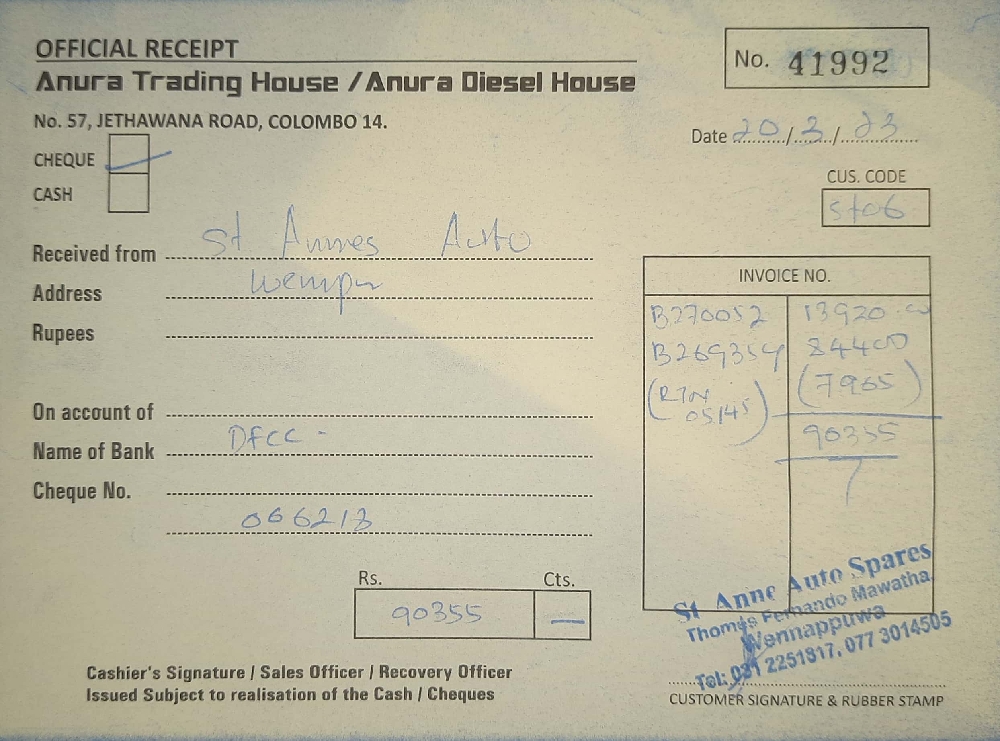 OFFICIAL RECEIPT
No. 41992
Anura Trading House / Anura Diesel House
No. 57, JETHAWANA ROAD, COLOMBO 14.
Date 20/3/23
CHEQUE
CASH
CUS. CODE
St06
Received from St Annes Auto
Address
Rupees
INVOICE NO.
B270052 13920.00
B269354 84400
(RTN 05145) (7965)
90355
On account of
Name of Bank DFCC -
Cheque No.
066213
Rs. Cts.
90355 —
St Anne Auto Spares
Thomas Fernando Mawatha,
Wennappuwa
Tel: 031 2251817, 077 3014505
Cashier's Signature / Sales Officer / Recovery Officer
Issued Subject to realisation of the Cash / Cheques
CUSTOMER SIGNATURE & RUBBER STAMP